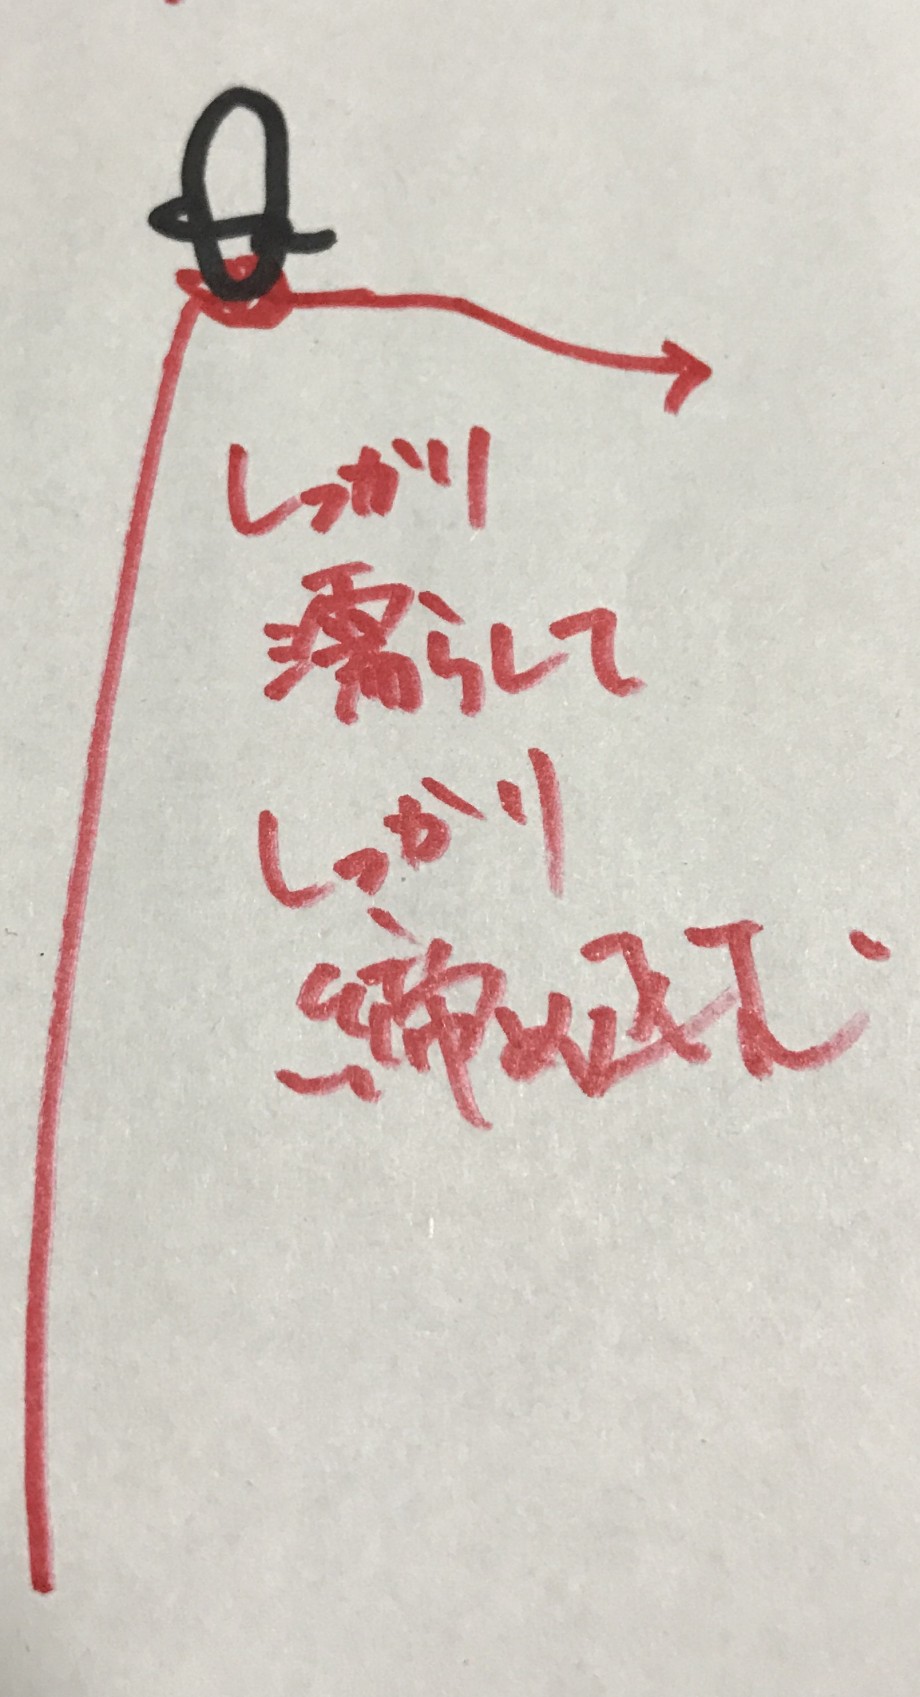 しっかり
濡らして
しっかり
締め込む